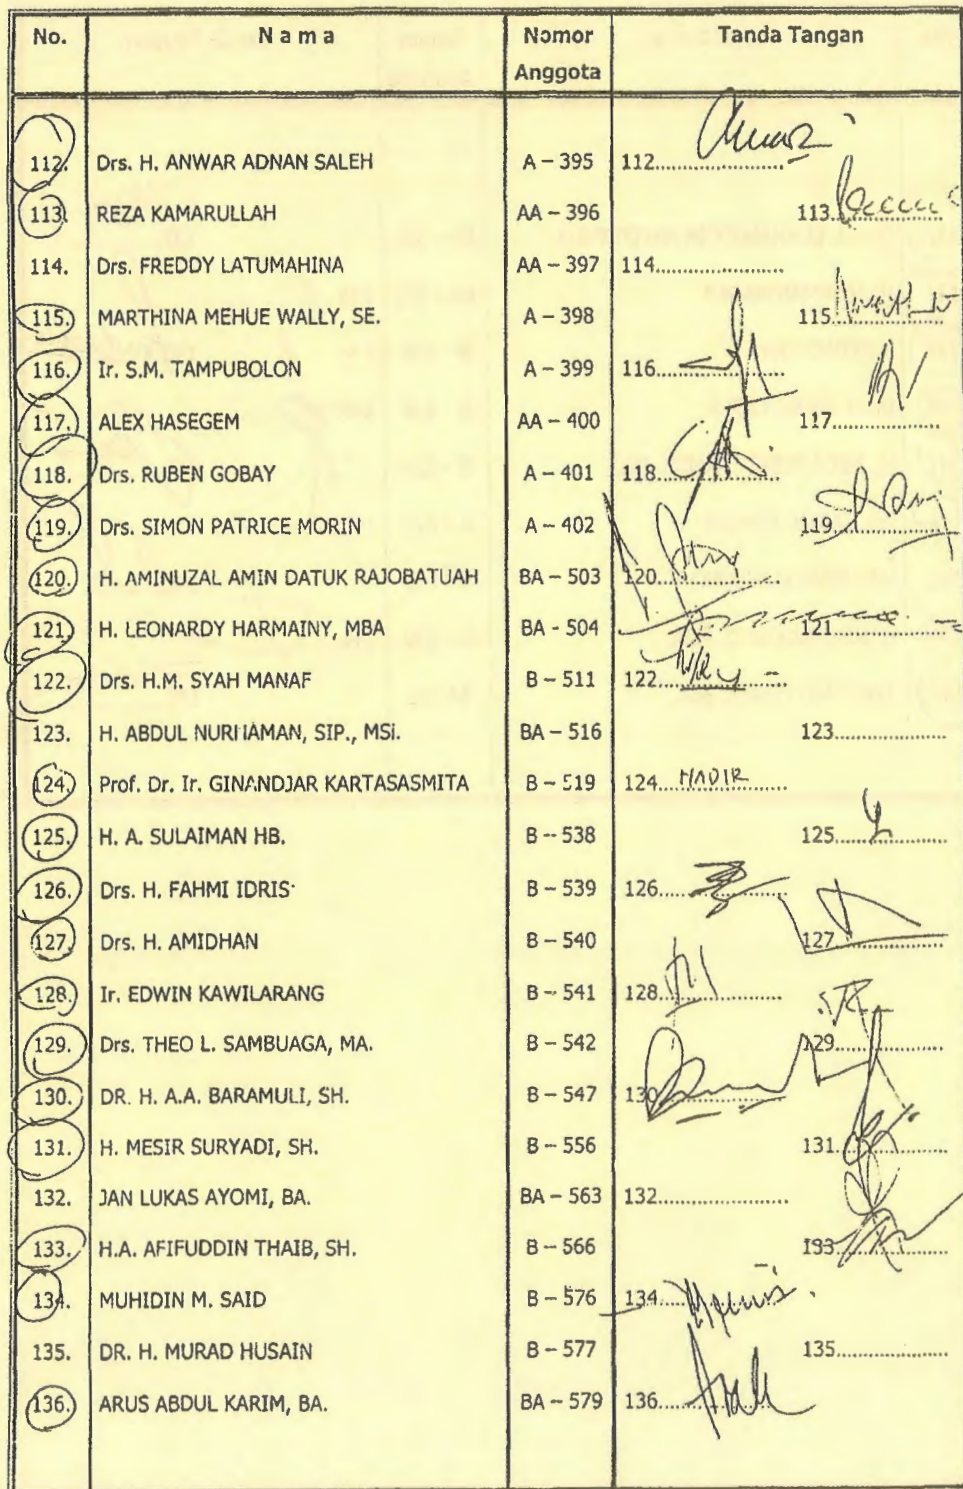 No. N a m a Nomor Anggota Tanda Tangan
112. Drs. H. ANWAR ADNAN SALEH A – 395 112......................
113. REZA KAMARULLAH AA – 396 113......................
114. Drs. FREDDY LATUMAHINA AA – 397 114......................
115. MARTHINA MEHUE WALLY, SE. A – 398 115......................
116. Ir. S.M. TAMPUBOLON A – 399 116......................
117. ALEX HASEGEM AA – 400 117......................
118. Drs. RUBEN GOBAY A – 401 118......................
119. Drs. SIMON PATRICE MORIN A – 402 119......................
120. H. AMINUZAL AMIN DATUK RAJOBATUAH BA – 503 120......................
121. H. LEONARDY HARMAINY, MBA BA - 504 121......................
122. Drs. H.M. SYAH MANAF B – 511 122......................
123. H. ABDUL NURHAMAN, SIP., MSi. BA – 516 123......................
124. Prof. Dr. Ir. GINANDJAR KARTASASMITA B – 519 124. HADIR
125. H. A. SULAIMAN HB. B – 538 125......................
126. Drs. H. FAHMI IDRIS B – 539 126......................
127. Drs. H. AMIDHAN B – 540 127......................
128. Ir. EDWIN KAWILARANG B – 541 128......................
129. Drs. THEO L. SAMBUAGA, MA. B – 542 129......................
130. DR. H. A.A. BARAMULI, SH. B – 547 130......................
131. H. MESIR SURYADI, SH. B – 556 131......................
132. JAN LUKAS AYOMI, BA. BA – 563 132......................
133. H.A. AFIFUDDIN THAIB, SH. B – 566 133......................
134. MUHIDIN M. SAID B – 576 134......................
135. DR. H. MURAD HUSAIN B – 577 135......................
136. ARUS ABDUL KARIM, BA. BA – 579 136......................